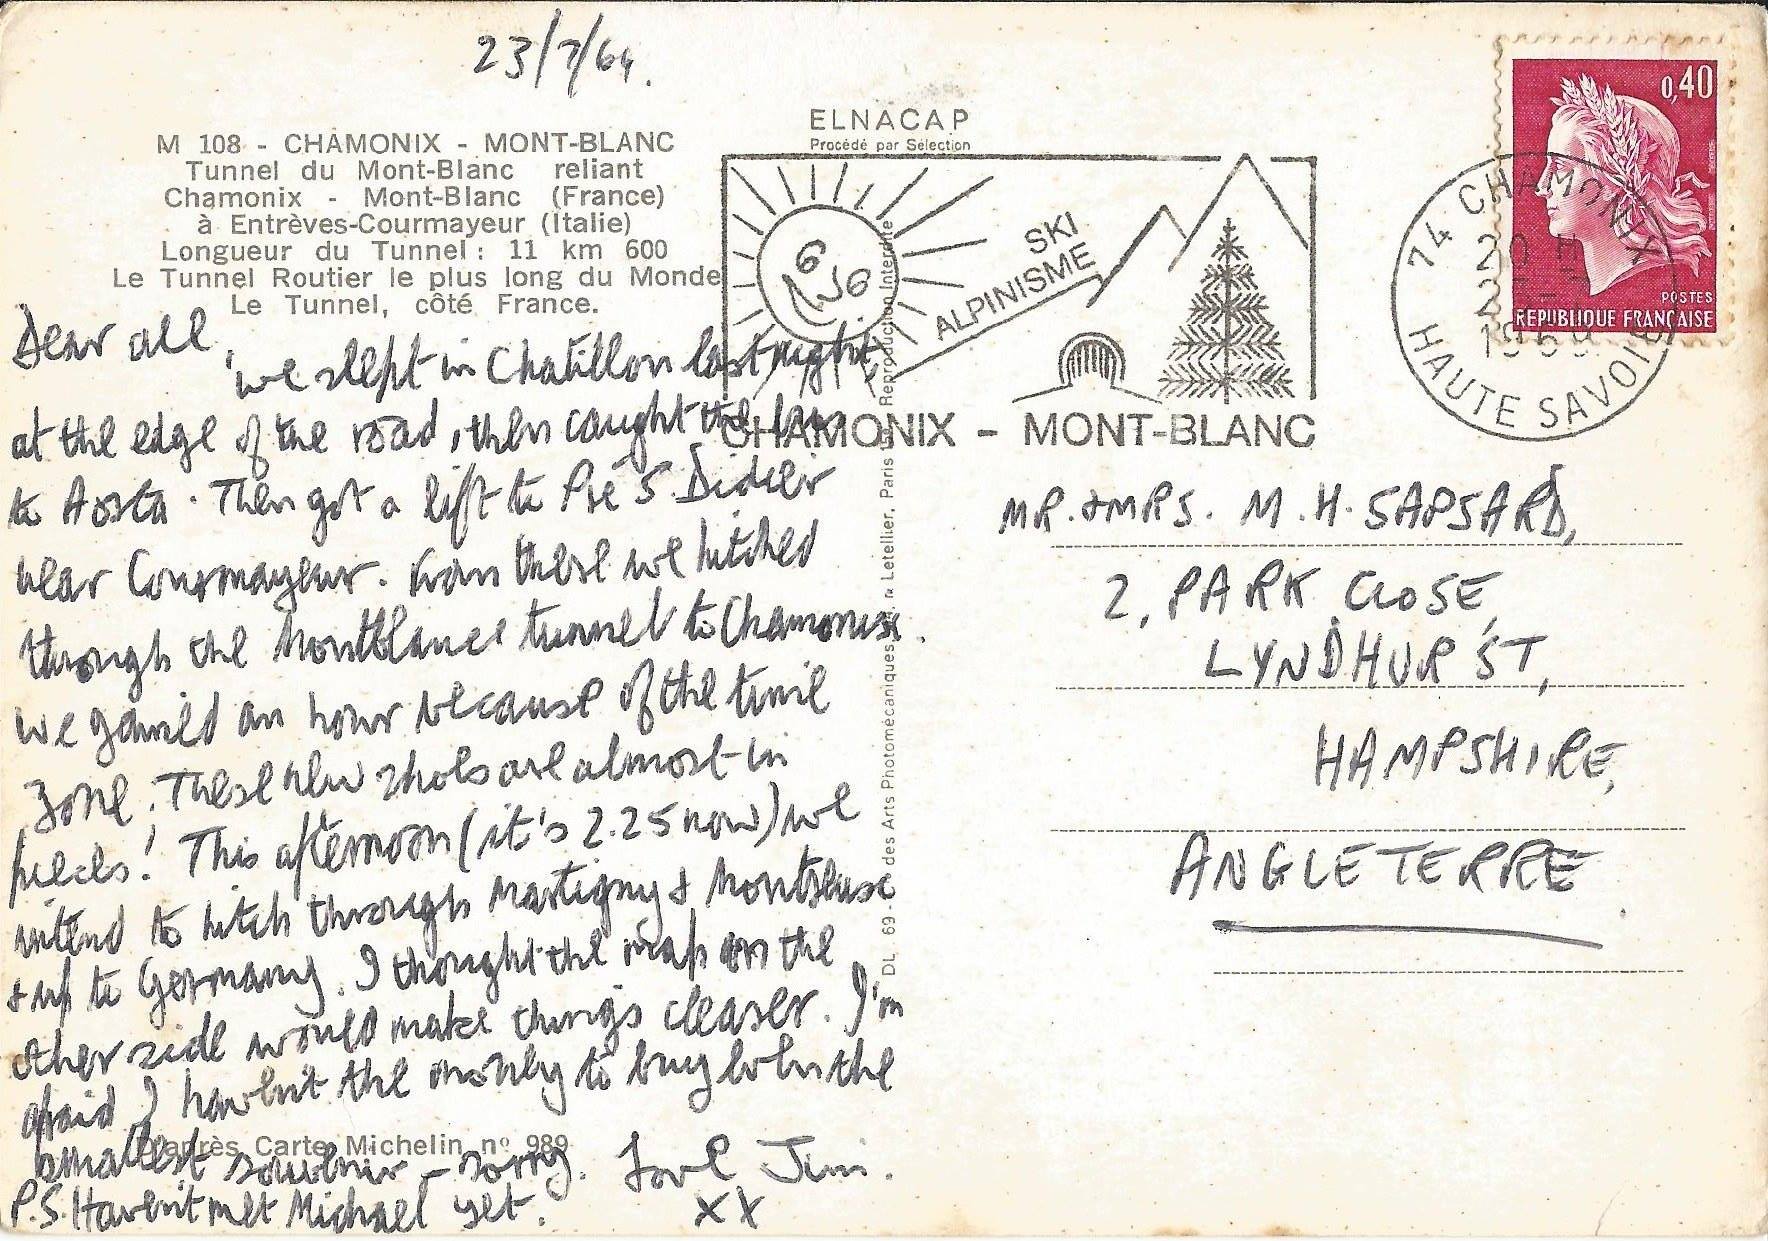 23/7/69.
M 108 - CHAMONIX - MONT-BLANC
Tunnel du Mont-Blanc reliant
Chamonix - Mont-Blanc (France)
à Entrèves-Courmayeur (Italie)
Longueur du Tunnel : 11 km 600
Le Tunnel Routier le plus long du Monde
Le Tunnel, côté France.
ELNACAP
Procédé par Sélection
SKI
ALPINISME
CHAMONIX - MONT-BLANC
0,40
POSTES
REPUBLIQUE FRANÇAISE
74 CHAMONIX
20 H
1969
HAUTE SAVOIE
Dear all,
we slept in Chatillon last night,
at the edge of the road, then caught the bus
to Aosta. Then got a lift to Pré S. Didier
near Courmayeur. From there we hitched
through the Montblanc tunnel to Chamonix.
We gained an hour because of the time
zone. These new shoes are almost in
pieces! This afternoon (it's 2.25 now) we
intend to hitch through Martigny & Montreux
& up to Germany. I thought the map on the
other side would make things clearer. I'm
afraid I haven't the money to buy even the
smallest souvenir - sorry. Love Jim.
xx
P.S. Haven't met Michael yet.
D'après Carte Michelin nº 989
DL. 69 - des Arts Photomécaniques Letellier, Paris Reproduction Interdite
MR. & MRS. M. H. SAPSARD,
2, PARK CLOSE,
LYNDHURST,
HAMPSHIRE,
ANGLETERRE